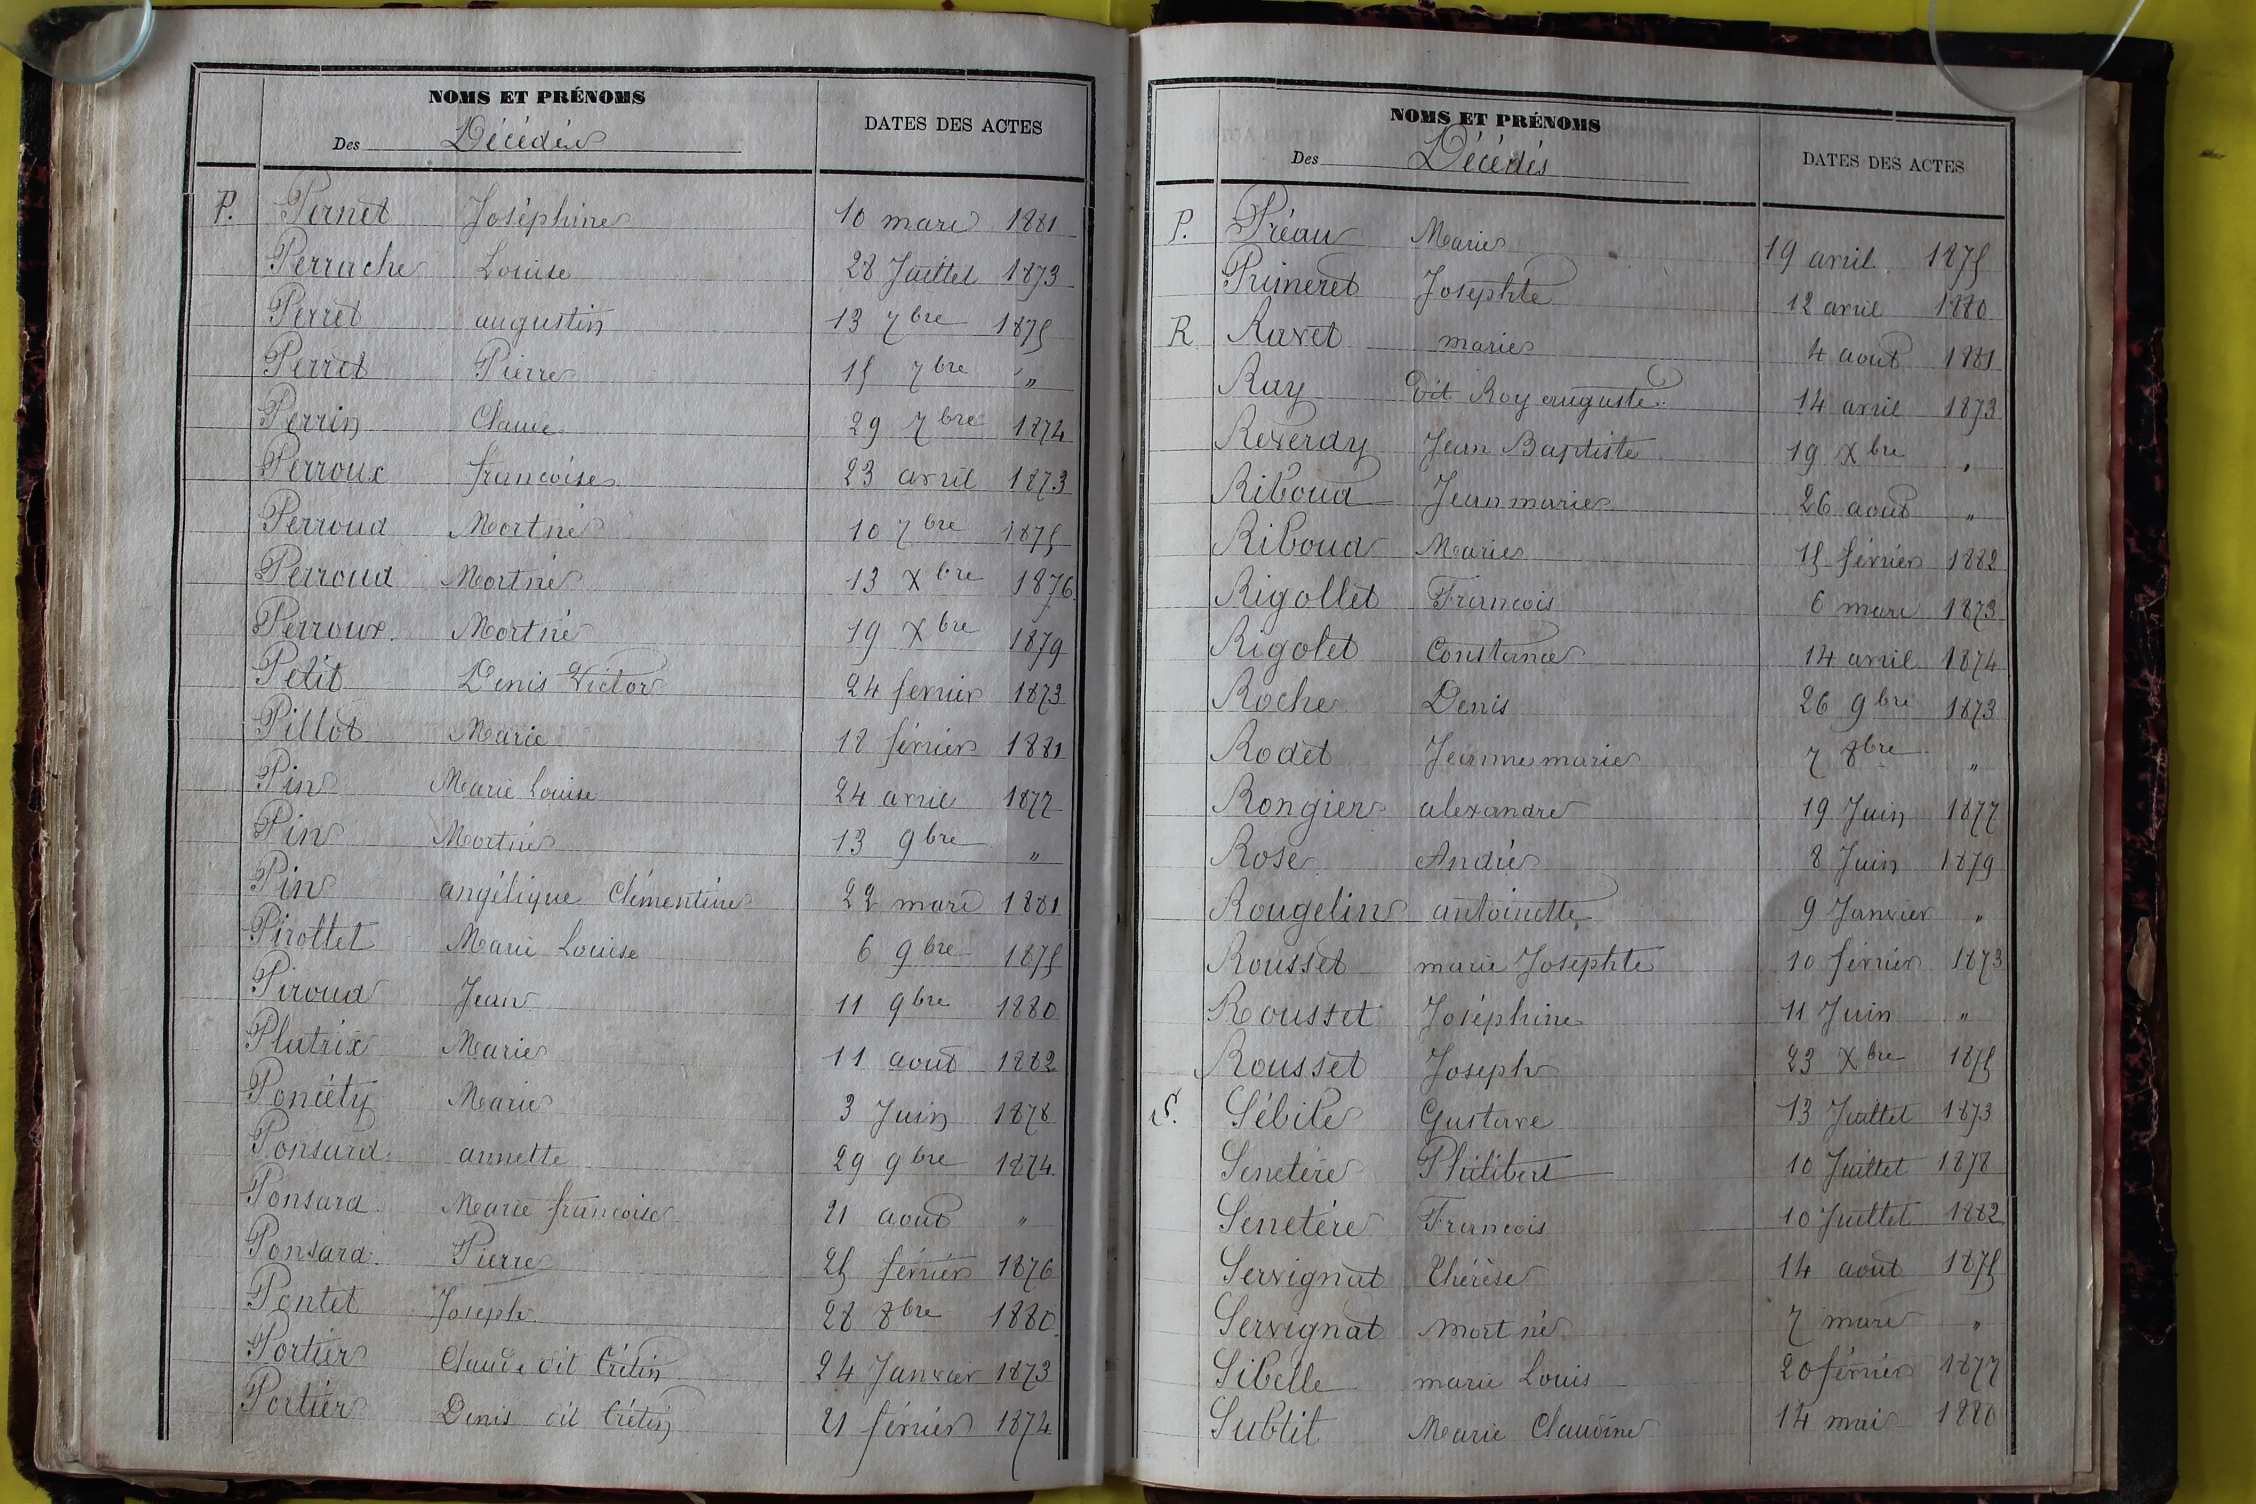 NOMS ET PRÉNOMS
DATES DES ACTES
Des Décédés
P. Pernet Joséphine 10 mars 1881
Perrache Louise 28 Juillet 1873
Perret augustin 13 7bre 1875
Perret Pierre 15 7bre "
Perrin Claude 29 7bre 1874
Perroux francoise 23 avril 1873
Perroud Mortné 10 7bre 1875
Perroud Mortné 13 Xbre 1876
Perroux Mortné 19 Xbre 1879
Petit Denis Victor 24 fevrier 1873
Pillot Marie 12 février 1881
Pin Marie Louise 24 avril 1877
Pin Mortné 13 9bre "
Pin angélique Clémentine 22 mars 1881
Pirollet Marie Louise 6 9bre 1875
Piroud Jean 11 9bre 1880
Platrix Marie 11 aout 1882
Poncéty Marie 3 Juin 1878
Ponsard annette 29 9bre 1874
Ponsard Marie francoise 21 aout "
Ponsard Pierre 25 février 1876
Pontet Joseph 28 8bre 1880
Portier Claude dit Crétin 24 Janvier 1873
Portier Denis dit Crétin 21 février 1874
NOMS ET PRÉNOMS
DATES DES ACTES
Des Décédés
P. Préau Marie 19 avril 1875
Primeret Josephte 12 avril 1880
R Ravet marie 4 aout 1881
Ray Dit Roy auguste 14 avril 1873
Reverdy Jean Baptiste 19 Xbre "
Riboud Jean marie 26 aout "
Riboud Marie 15 février 1882
Rigollet Francois 6 mars 1873
Rigolet Constance 14 avril 1874
Roche Denis 26 9bre 1873
Rodet Jeanne marie 7 8bre "
Rongier alexandre 19 Juin 1877
Rose André 8 Juin 1879
Rougelin antoinette 9 Janvier "
Rousset marie Josephte 10 février 1873
Rousset Joséphine 11 Juin "
Rousset Joseph 23 Xbre 1875
S. Sébile Gustave 13 Juillet 1873
Senetére Philibert 10 Juillet 1878
Senetére Francois 10 Juillet 1882
Servignat Thérèse 14 août 1875
Servignat mort né 7 mars "
Sibelle marie Louis 20 février 1877
Subtil Marie Claudine 14 mai 1880